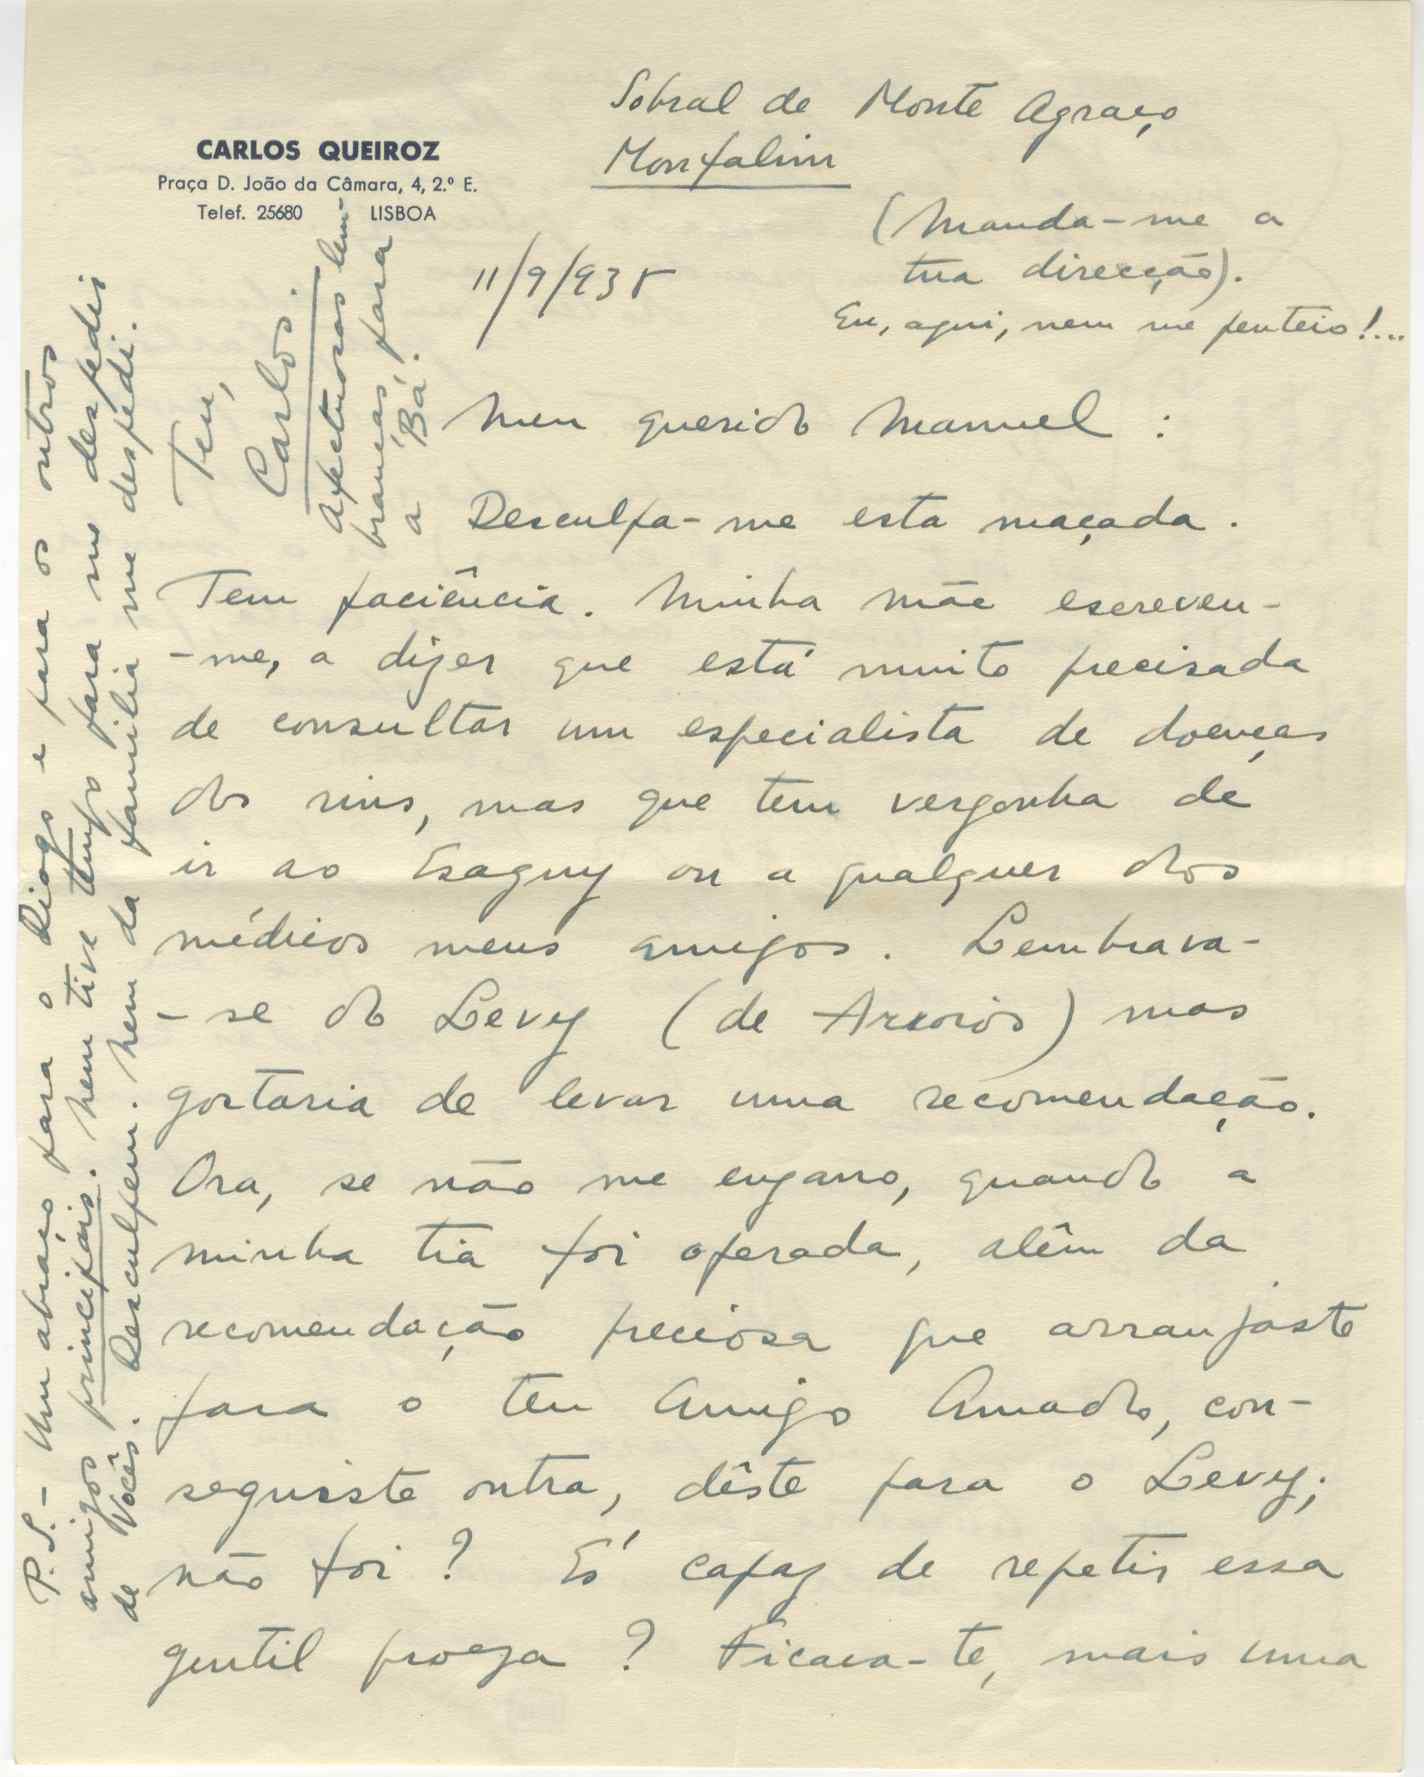 CARLOS QUEIROZ
Praça D. João da Câmara, 4, 2.º E.
Telef. 25680 LISBOA
Sobral de Monte Agraço
Monfalim
(Manda-me a
tua direcção).
Eu, aqui, nem me penteio!...
11/9/935
Meu querido Manuel :
Desculpa-me esta maçada.
Tem paciência. Minha mãe escreveu-
-me, a dizer que está muito precisada
de consultar um especialista de doenças
dos rins, mas que tem vergonha de
ir ao Esaguy ou a qualquer dos
médicos meus amigos. Lembrava-
-se do Levy (de Arroios) mas
gostaria de levar uma recomendação.
Ora, se não me engano, quando a
minha tia foi operada, alêm da
recomendação preciosa que arranjaste
para o teu Amigo Amado, con-
seguiste outra, dêste para o Levy;
não foi? És capaz de repetir essa
gentil proeza? Ficava-te, mais uma
Teu,
Carlos.
Afectuosas lem-
branças, para
a Bá.
P.S.- Um abraço para o Diogo e para os outros
amigos principais. Nem tive tempo para me despedir
de Vocês. Desculpem. Nem da família me despedi.